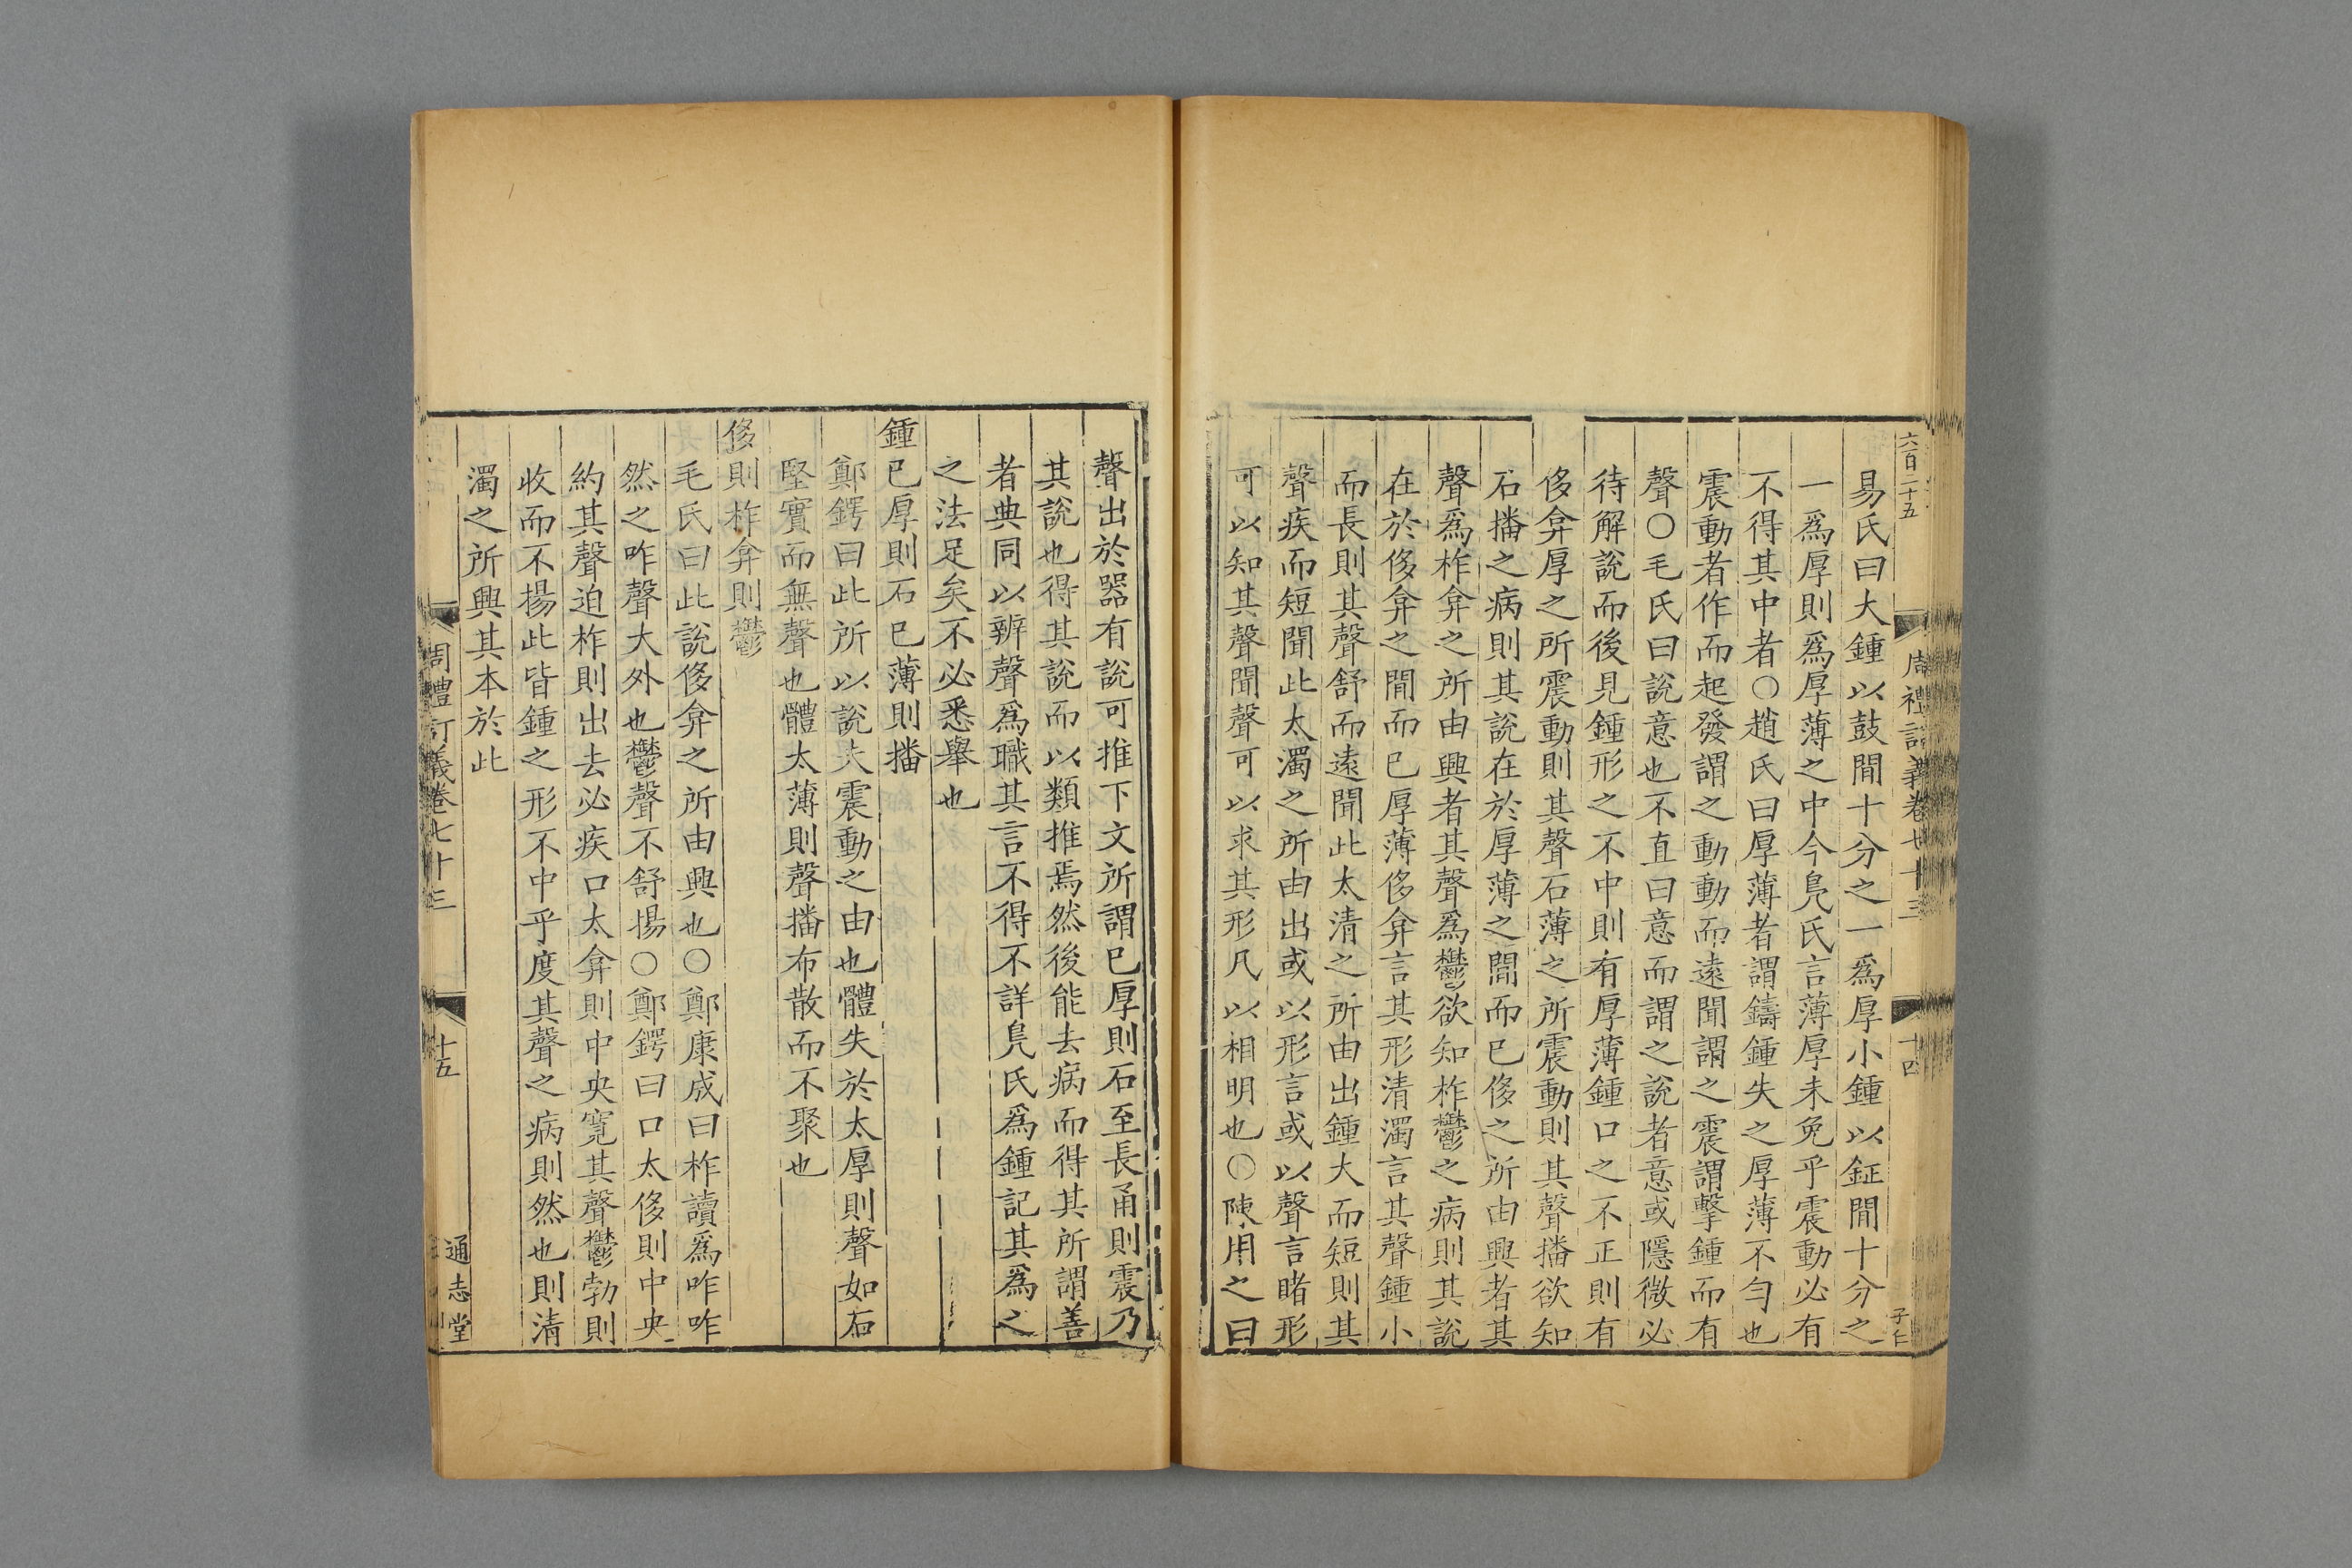 六百二十五
周禮訂義卷七十三
十四
子仁
易氏曰大鍾以鼓閒十分之一爲厚小鍾以鉦閒十分之
一爲厚則爲厚薄之中今鳧氏言薄厚未免乎震動必有
不得其中者○趙氏曰厚薄者謂鑄鍾失之厚薄不勻也
震動者作而起發謂之動動而遠聞謂之震謂擊鍾而有
聲○毛氏曰說意也不直曰意而謂之說者意或隱微必
待解說而後見鍾形之不中則有厚薄鍾口之不正則有
侈弇厚之所震動則其聲石薄之所震動則其聲播欲知
石播之病則其說在於厚薄之閒而已侈之所由興者其
聲爲柞弇之所由興者其聲爲鬱欲知柞鬱之病則其說
在於侈弇之閒而已厚薄侈弇言其形清濁言其聲鍾小
而長則其聲舒而遠聞此太清之所由出鍾大而短則其
聲疾而短聞此太濁之所由出或以形言或以聲言睹形
可以知其聲聞聲可以求其形凡以相明也○陳用之曰
聲出於器有說可推下文所謂已厚則石至長甬則震乃
其說也得其說而以類推焉然後能去病而得其所謂善
者典同以辨聲爲職其言不得不詳鳧氏爲鍾記其爲之
之法足矣不必悉舉也
鍾已厚則石已薄則播
鄭鍔曰此所以說夫震動之由也體失於太厚則聲如石
堅實而無聲也體太薄則聲播布散而不聚也
侈則柞弇則鬱
毛氏曰此說侈弇之所由興也○鄭康成曰柞讀爲咋咋
然之咋聲大外也鬱聲不舒揚○鄭鍔曰口太侈則中央
約其聲迫柞則出去必疾口太弇則中央寬其聲鬱勃則
收而不揚此皆鍾之形不中乎度其聲之病則然也則清
濁之所興其本於此
周禮訂義卷七十三
十五
通志堂